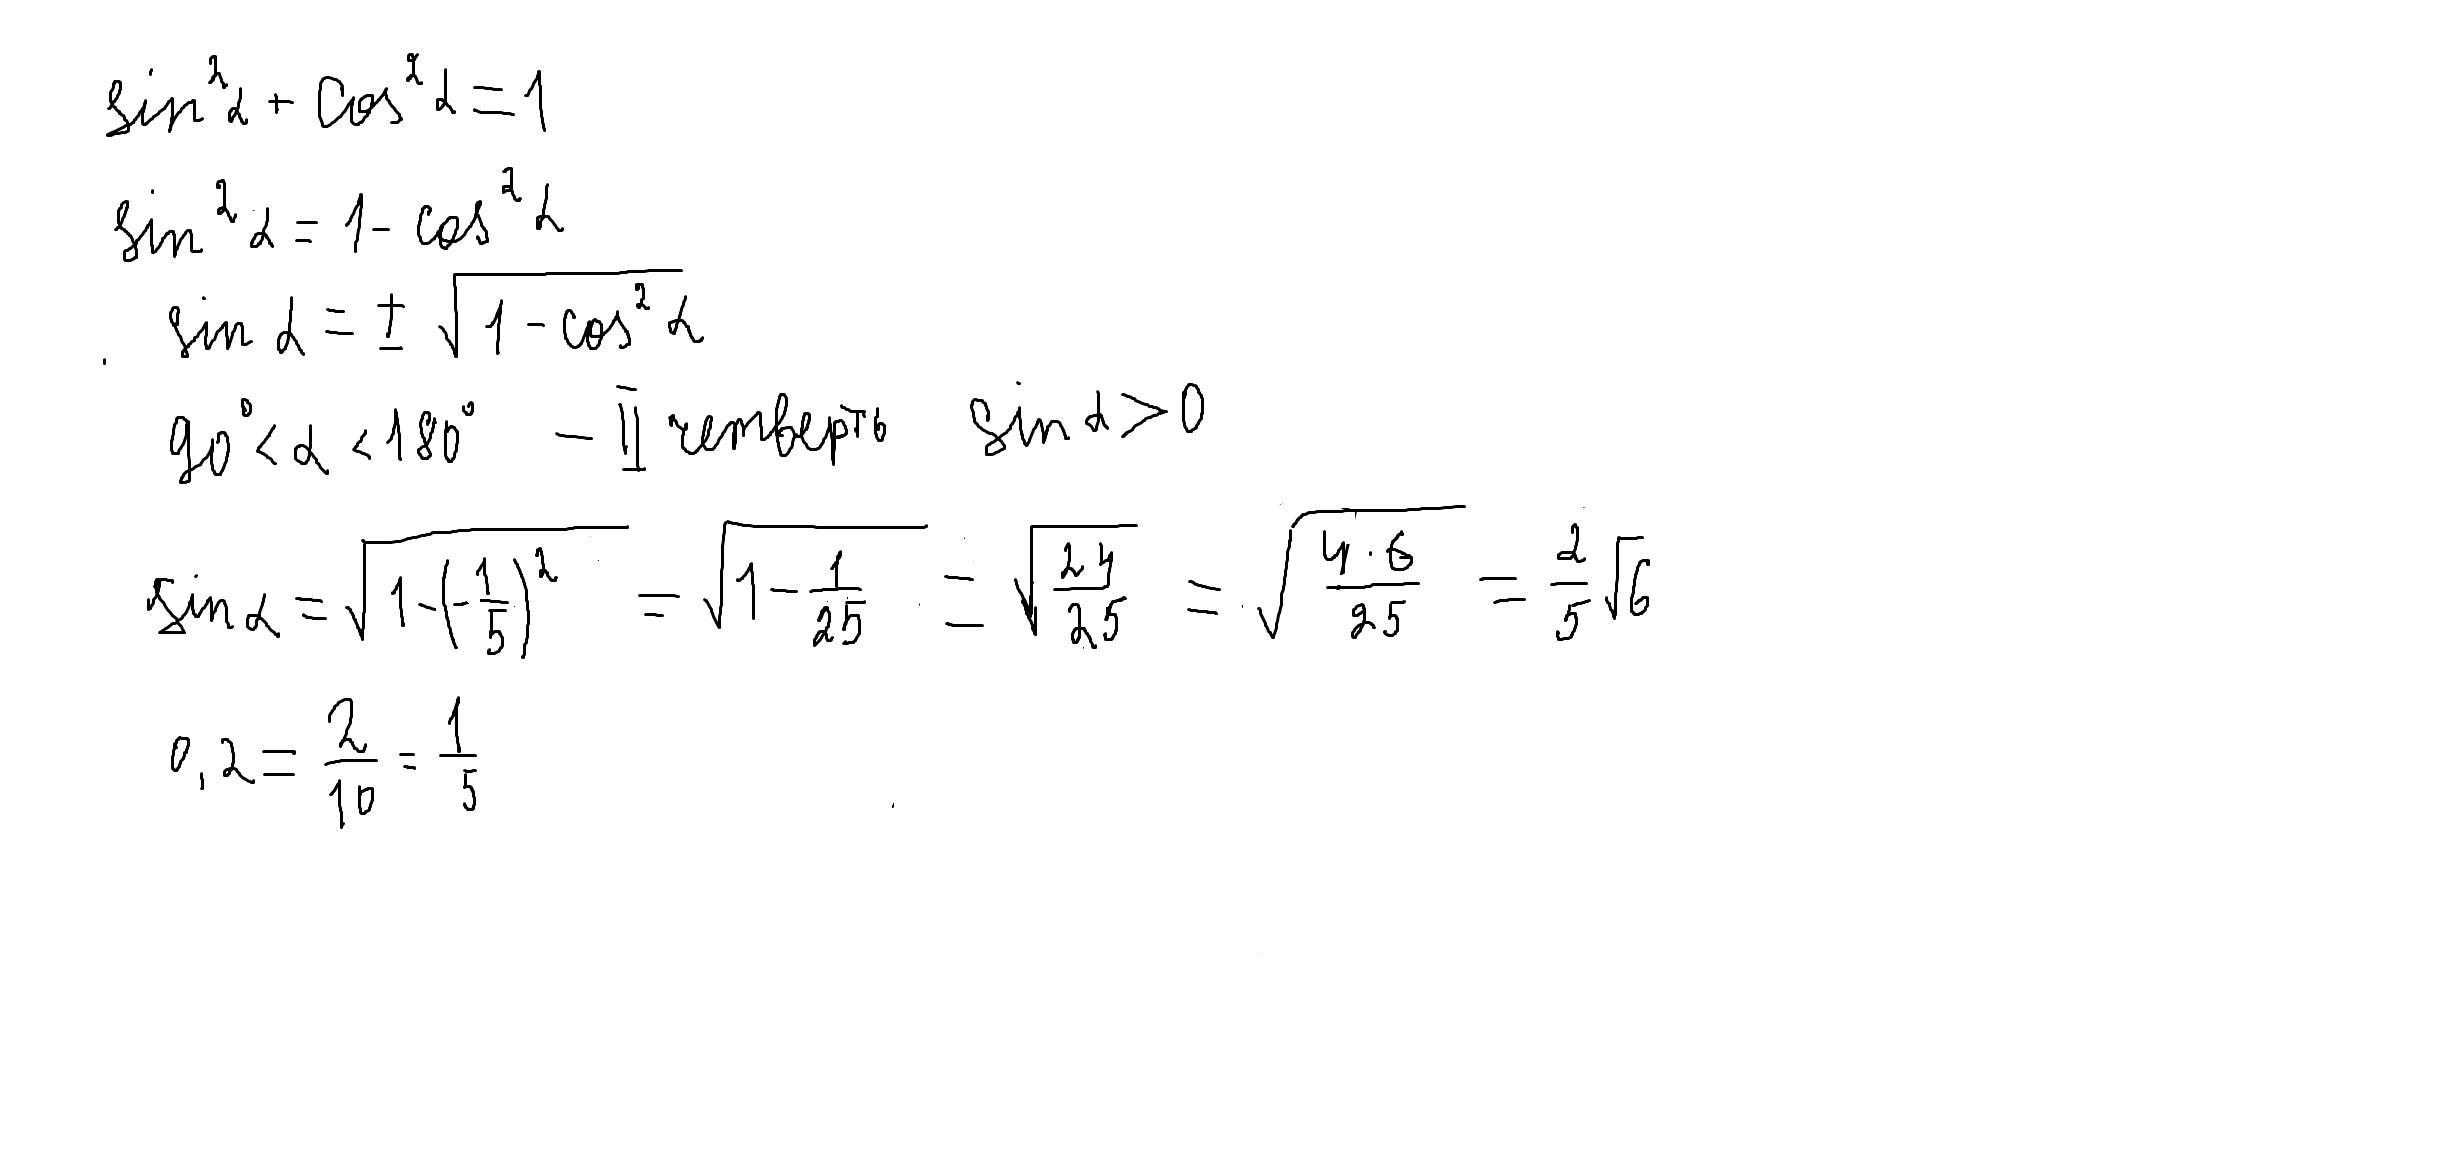 sin²α + cos²α = 1
sin²α = 1 - cos²α
sin α = ± √(1 - cos²α)
90° < α < 180° - II четверть sin α > 0
sin α = √(1 - (-1/5)²) = √(1 - 1/25) = √(24/25) = √(4·6/25) = 2/5 √6
0,2 = 2/10 = 1/5